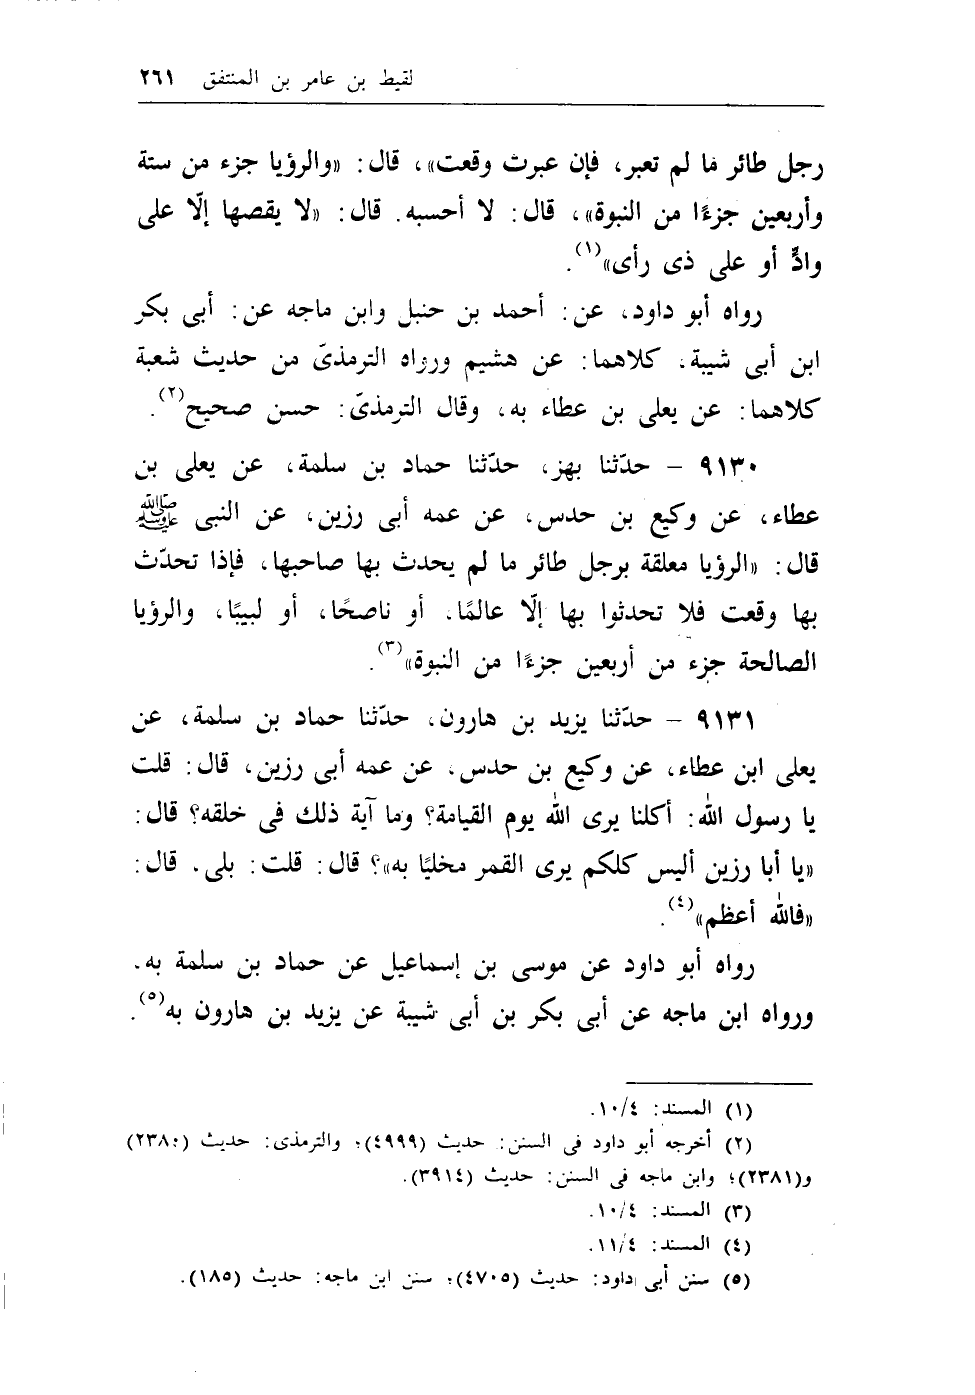 لقيط بن عامر بن المنتفق ٢٦١
رجل طائر ما لم تعبر، فإن عبرت وقعت»، قال: «والرؤيا جزء من ستة
وأربعين جزءًا من النبوة»، قال: لا أحسبه. قال: «لا يقصها إلّا على
وادٍّ أو على ذى رأى»(١).
رواه أبو داود، عن: أحمد بن حنبل وابن ماجه عن: أبى بكر
ابن أبى شيبة، كلاهما: عن هشيم ورواه الترمذىّ من حديث شعبة
كلاهما: عن يعلى بن عطاء به، وقال الترمذىّ: حسن صحيح(٢).
٩١٣٠ – حدّثنا بهز، حدّثنا حماد بن سلمة، عن يعلى بن
عطاء، عن وكيع بن حدس، عن عمه أبى رزين، عن النبى ﷺ
قال: «الرؤيا معلقة برجل طائر ما لم يحدث بها صاحبها، فإذا تحدّث
بها وقعت فلا تحدثوا بها إلّا عالمًا، أو ناصحًا، أو لبيبًا، والرؤيا
الصالحة جزء من أربعين جزءًا من النبوة»(٣).
٩١٣١ – حدّثنا يزيد بن هارون، حدّثنا حماد بن سلمة، عن
يعلى ابن عطاء، عن وكيع بن حدس، عن عمه أبى رزين، قال: قلت
يا رسول الله: أكلنا يرى الله يوم القيامة؟ وما آية ذلك فى خلقه؟ قال:
«يا أبا رزين أليس كلكم يرى القمر مخليًا به»؟ قال: قلت: بلى. قال:
«فالله أعظم»(٤).
رواه أبو داود عن موسى بن إسماعيل عن حماد بن سلمة به.
ورواه ابن ماجه عن أبى بكر بن أبى شيبة عن يزيد بن هارون به(٥).
(١) المسند: ١٠/٤.
(٢) أخرجه أبو داود فى السنن: حديث (٤٩٩٩)؛ والترمذى: حديث (٢٣٨٠)
و(٢٣٨١)؛ وابن ماجه فى السنن: حديث (٣٩١٤).
(٣) المسند: ١٠/٤.
(٤) المسند: ١١/٤.
(٥) سنن أبى داود: حديث (٤٧٠٥)؛ سنن ابن ماجه: حديث (١٨٥).